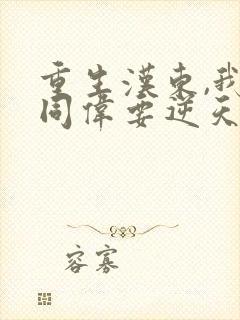 重生漢東,我
同偉要逆天
容寡